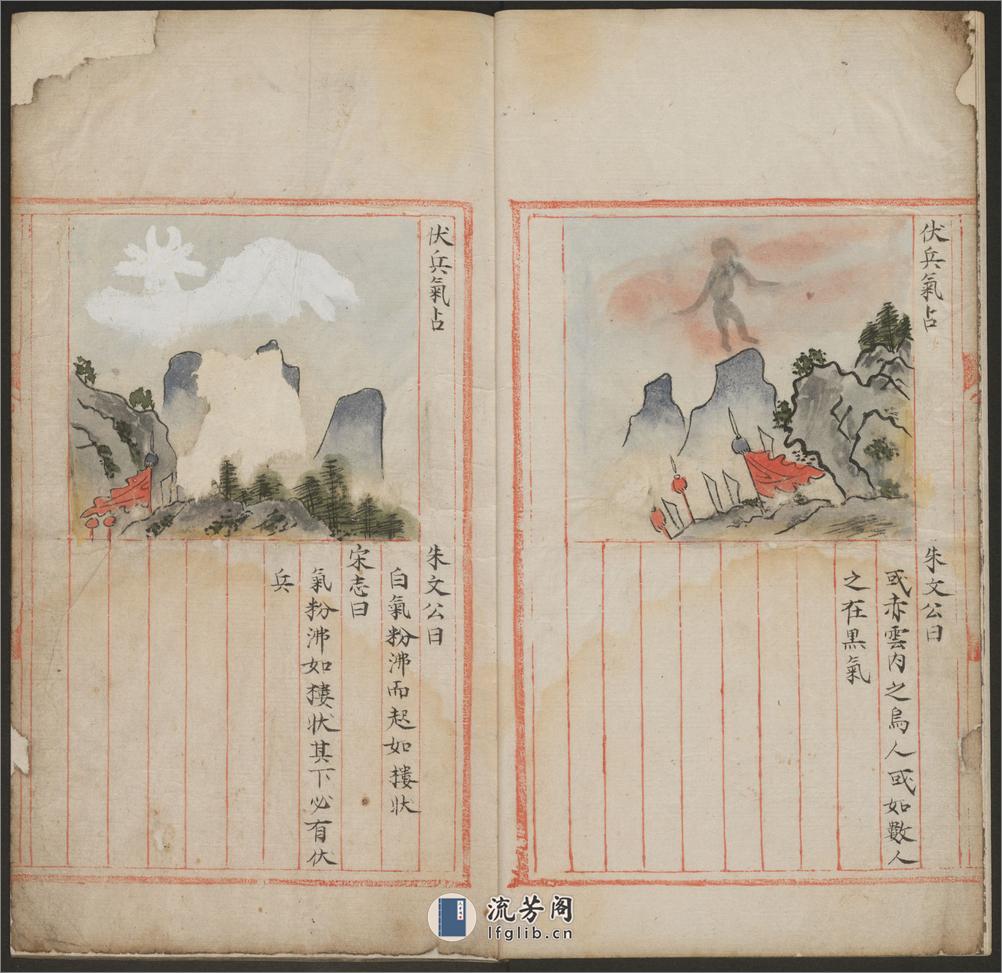 伏兵氣占
朱文公曰
或赤雲内之烏人或如數人
之在黒氣
伏兵氣占
朱文公曰
白氣粉沸而起如搂狀
宋志曰
氣粉沸如搂狀其下必有伏
兵
流芳阁
lfglib.cn